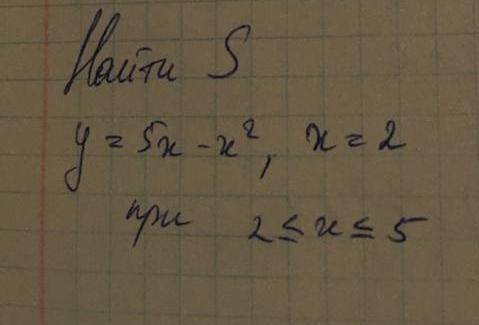 Найти S
y = 5x - x², x = 2
при 2 ≤ x ≤ 5